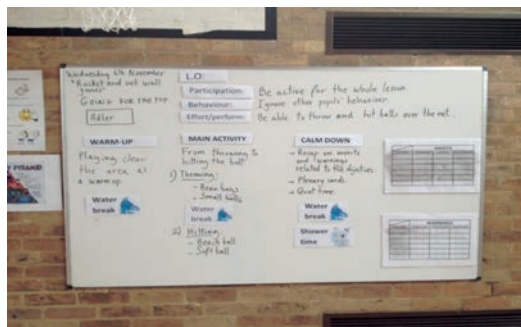 Wednesday 6th November
"Racket and net wall
games"
GOING FOR THE TOP
Adler
L.O:
Participation: Be active for the whole lesson
Behaviour: Ignore other pupils' behaviour.
Effort/perform: Be able to throw and hit balls over the net.
WARM-UP
Playing clear
the area as
a warm up.
Water
break
MAIN ACTIVITY
From throwing to
hitting the ball
1) Throwing:
- Bean bags
- Small balls
Water
break
2) Hitting:
- Beach ball
- Soft ball
CALM DOWN
→ Recap on merits
and warnings
related to the objectives
→ Plenary cards.
→ Quiet time.
Water
break
Shower
time
MERITS
WARNINGS
PYRAMID